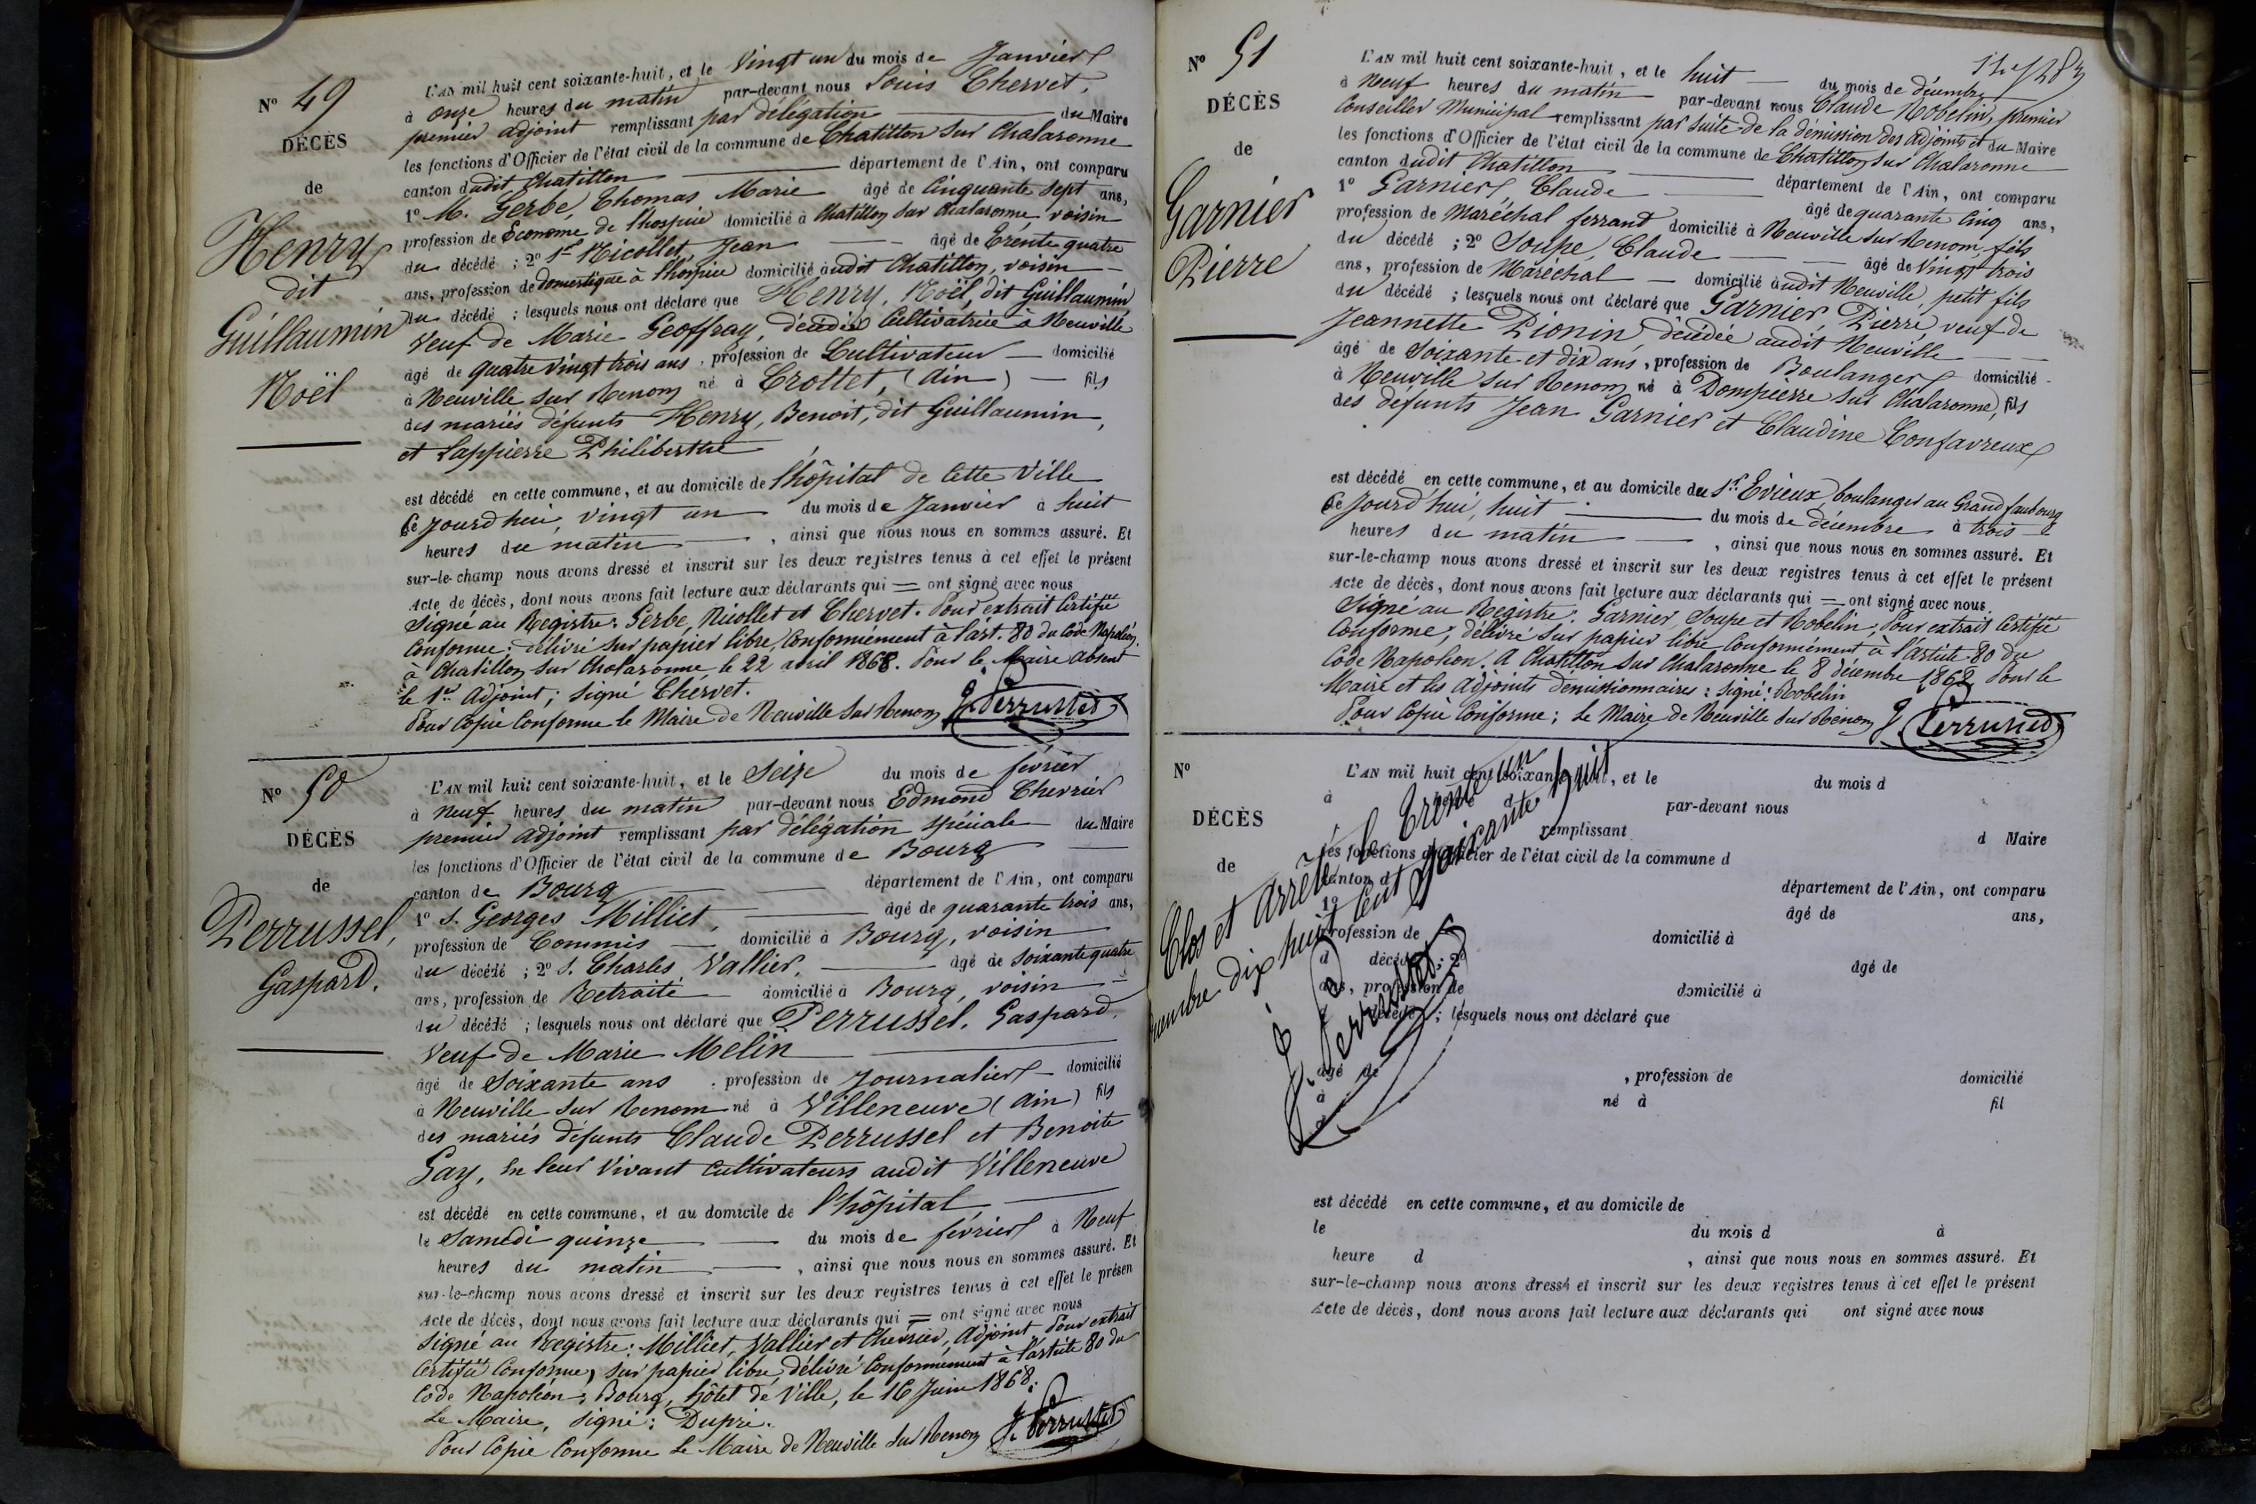 N° 49
DÉCÈS
de
Henry
dit
Guillaumin
Noël
L'AN mil huit cent soixante-huit, et le Vingt un du mois de Janvier
à onze heures du matin par-devant nous Louis Chervet,
premier adjoint remplissant par délégation du Maire
les fonctions d'Officier de l'état civil de la commune de Chatillon sur Chalaronne
canton dudit Chatillon département de l'Ain, ont comparu
1° M. Gerbe, Thomas Marie âgé de Cinquante sept ans,
profession de Econome de l'hospice domicilié à Chatillon sur Chalaronne voisin
du décédé ; 2° Sr Nicollet, Jean âgé de Trente quatre
ans, profession de domestique à l'hospice domicilié audit Chatillon, voisin
du décédé ; lesquels nous ont déclaré que Henry, Noël, dit Guillaumin
Veuf de Marie Geoffray, décédée Cultivatrice à Neuville
âgé de quatre vingt trois ans, profession de Cultivateur domicilié
à Neuville sur Renom né à Crottet, (Ain) fils
des mariés défunts Henry, Benoit, dit Guillaumin,
et Lappierre Philiberthe
est décédé en cette commune, et au domicile de l'hôpital de cette Ville
Ce jourd'hui, vingt un du mois de Janvier à huit
heures du matin, ainsi que nous nous en sommes assuré. Et
sur-le-champ nous avons dressé et inscrit sur les deux registres tenus à cet effet le présent
Acte de décès, dont nous avons fait lecture aux déclarants qui = ont signé avec nous
Signé au Registre: Gerbe, Nicollet et Chervet. Pour extrait Certifié
Conforme: délivré sur papier libre, Conformément à l'art. 80 du Code Napoléon.
à Chatillon sur Chalaronne, le 22 avril 1868. Pour le Maire absent
le 1er Adjoint; Signé Chervet.
Pour Copie Conforme le Maire de Neuville sur Renom G. Perrussel
N° 50
DÉCÈS
de
Perrussel,
Gaspard.
L'AN mil huit cent soixante-huit, et le Seize du mois de février
à neuf heures du matin par-devant nous Edmond Chevrier
premier adjoint remplissant par délégation spéciale du Maire
les fonctions d'Officier de l'état civil de la commune de Bourg
canton de Bourg département de l'Ain, ont comparu
1° S. Georges Milliet, âgé de quarante trois ans,
profession de Commis domicilié à Bourg, voisin
du décédé ; 2° S. Charles Vallier, âgé de Soixante quatre
ans, profession de Retraité domicilié à Bourg, voisin
du décédé ; lesquels nous ont déclaré que Perrussel, Gaspard,
Veuf de Marie Melin
âgé de Soixante ans, profession de Journalier domicilié
à Neuville sur Renom né à Villeneuve (Ain) fils
des mariés défunts Claude Perrussel et Benoite
Gay, en leur Vivant Cultivateurs audit Villeneuve
est décédé en cette commune, et au domicile de l'hôpital
le Samedi quinze du mois de février à Neuf
heures du matin, ainsi que nous nous en sommes assuré. Et
sur-le-champ nous avons dressé et inscrit sur les deux registres tenus à cet effet le présen
Acte de décès, dont nous avons fait lecture aux déclarants qui = ont signé avec nous
Signé au Registre: Milliet, Vallier et Chevrier, Adjoint. Pour extrait
Certifié Conforme, sur papier libre délivré Conformément à l'article 80 du
Code Napoléon, Bourg, hôtel de Ville, le 16 Juin 1868.
Le Maire, Signé: Dupré.
Pour Copie Conforme Le Maire de Neuville sur Renom G. Perrussel
N° 51
DÉCÈS
de
Garnier
Pierre
L'AN mil huit cent soixante-huit, et le huit du mois de décembre
à Neuf heures du matin par-devant nous Claude Robelin, premier
Conseiller Municipal remplissant par suite de la démission des Adjoints et du Maire
les fonctions d'Officier de l'état civil de la commune de Chatillon sur Chalaronne
canton dudit Chatillon département de l'Ain, ont comparu
1° Garnier, Claude âgé de quarante cinq ans,
profession de Maréchal ferrant domicilié à Neuville sur Renom, fils
du décédé ; 2° Soupe, Claude âgé de Vingt trois
ans, profession de Maréchal domicilié audit Neuville, petit fils
du décédé ; lesquels nous ont déclaré que Garnier, Pierre, veuf de
Jeannette Pionin, décédée audit Neuville
âgé de Soixante et dix ans, profession de Boulanger domicilié
à Neuville sur Renom né à Dompierre sur Chalaronne, fils
des défunts Jean Garnier et Claudine Confavreux
est décédé en cette commune, et au domicile du Sr Evieux, boulanger au Grand faubourg
Ce Jourd'hui, huit du mois de décembre à trois
heures du matin, ainsi que nous nous en sommes assuré. Et
sur-le-champ nous avons dressé et inscrit sur les deux registres tenus à cet effet le présent
Acte de décès, dont nous avons fait lecture aux déclarants qui = ont signé avec nous.
Signé au Registre: Garnier, Soupe et Robelin; Pour extrait Certifié
Conforme; délivré sur papier libre Conformément à l'article 80 du
Code Napoléon. A Chatillon sur Chalaronne le 8 décembre 1868 Pour le
Maire et les Adjoints démissionnaires: Signé: Robelin
Pour Copie Conforme; Le Maire de Neuville sur Renom G. Perrussel
N°
DÉCÈS
de
L'AN mil huit cent soixante-huit, et le du mois d
à heure d par-devant nous
remplissant d Maire
les fonctions d'Officier de l'état civil de la commune d
canton d département de l'Ain, ont comparu
1° âgé de ans,
profession de domicilié à
d décédé ; 2° âgé de
ans, profession de domicilié à
d décédé ; lesquels nous ont déclaré que
âgé de , profession de domicilié
à né à fil
est décédé en cette commune, et au domicile de
le du mois d à
heure d , ainsi que nous nous en sommes assuré. Et
sur-le-champ nous avons dressé et inscrit sur les deux registres tenus à cet effet le présent
Acte de décès, dont nous avons fait lecture aux déclarants qui ont signé avec nous
Clos et arrêté le Trente un
décembre dix huit cent Soixante huit
G. Perrussel